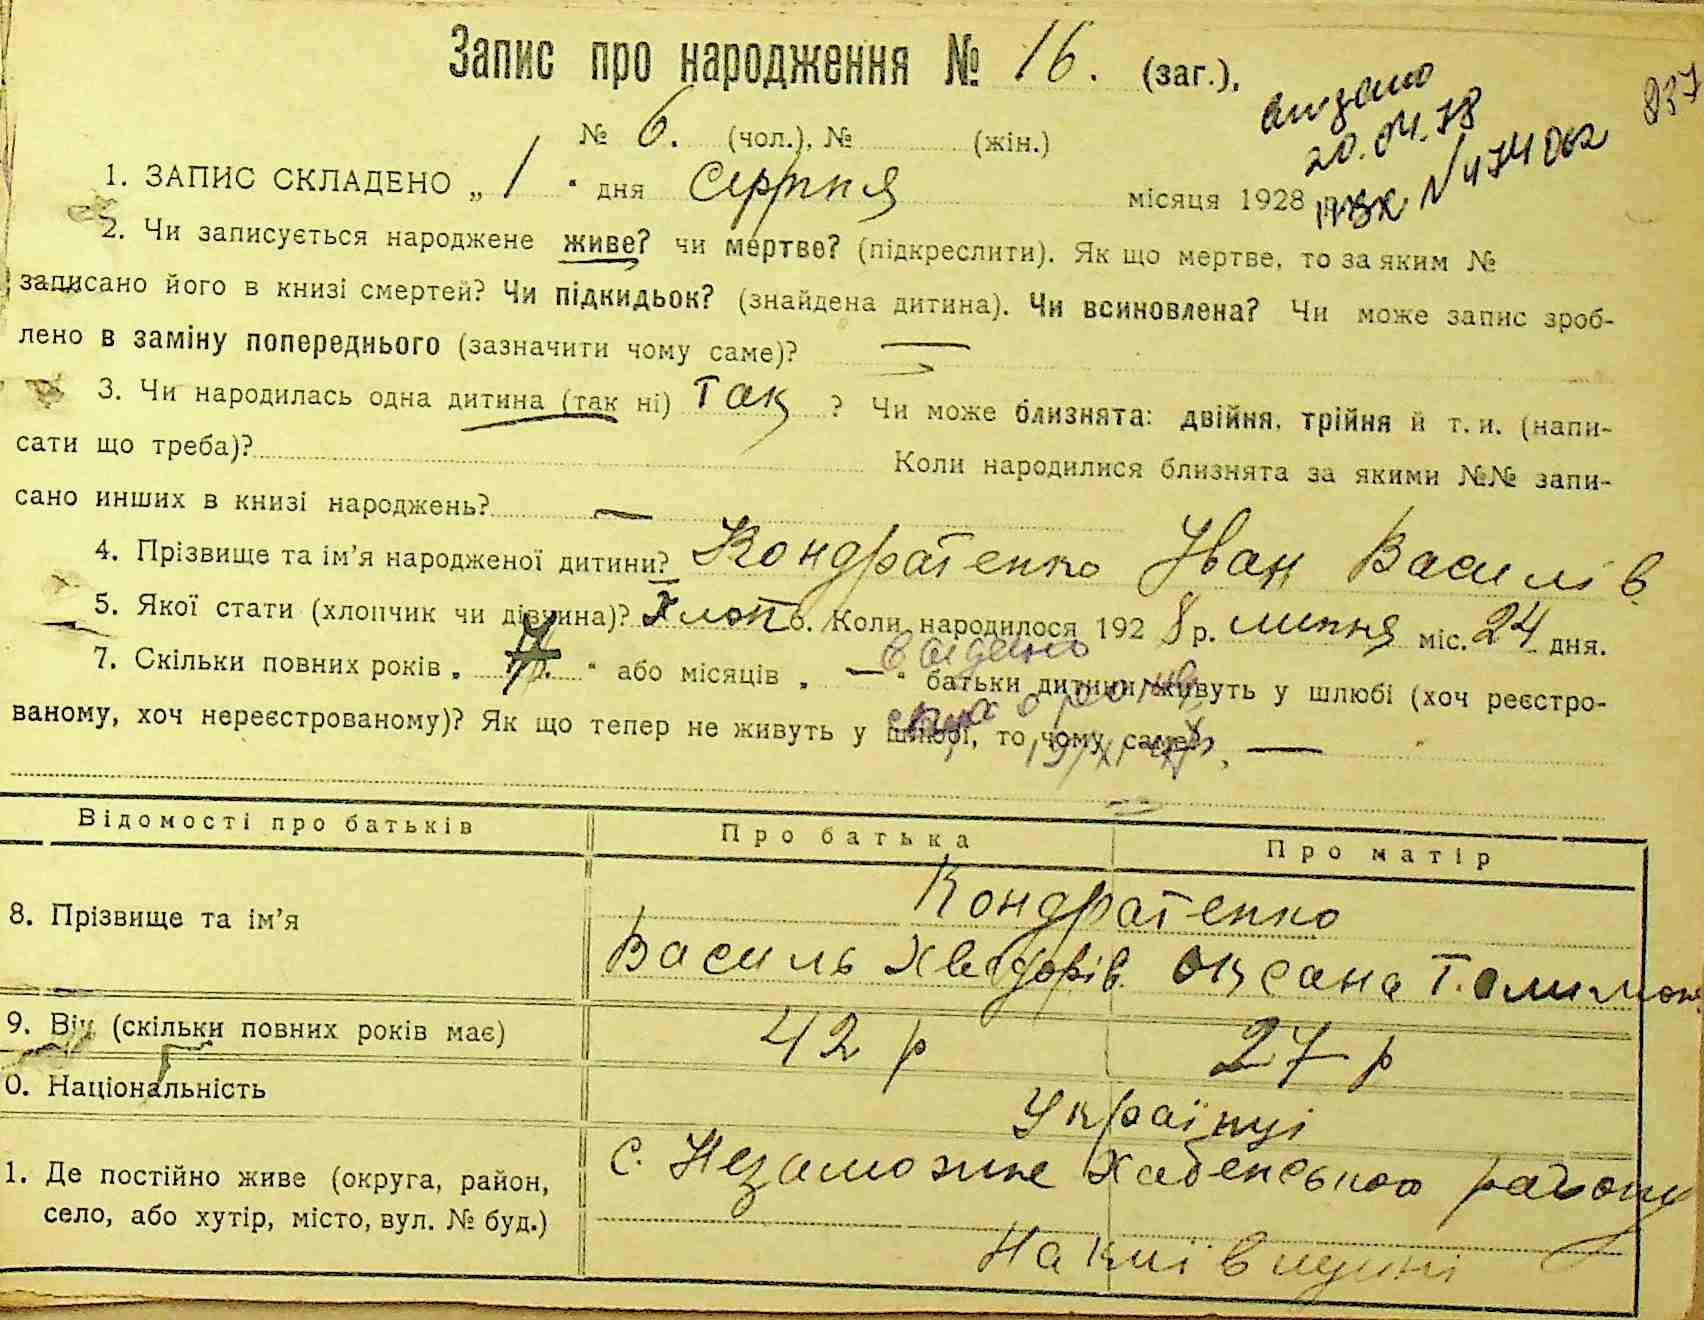 Запис про народження № 16. (заг.).
видано
20.04.78
№ 474062
№ 6. (чол.), № (жін.)
1. ЗАПИС СКЛАДЕНО „ 1 “ дня серпня місяця 1928
2. Чи записується народжене живе? чи мертве? (підкреслити). Як що мертве, то за яким №
записано його в книзі смертей? Чи підкидьок? (знайдена дитина). Чи всиновлена? Чи може запис зроб-
лено в заміну попереднього (зазначити чому саме)? —
3. Чи народилась одна дитина (так ні) Так ? Чи може близнята: двійня, трійня й т. и. (напи-
сати що треба)? Коли народилися близнята за якими №№ запи-
сано инших в книзі народжень? —
4. Прізвище та ім’я народженої дитини? Кондратенко Іван Василів
5. Якої стати (хлопчик чи дівчина)? Хлоп 6. Коли народилося 1928 р. липня міс. 24 дня.
7. Скільки повних років „ “ або місяців „ — “ батьки дитини живуть у шлюбі (хоч реєстро-
ваному, хоч нереєстрованому)? Як що тепер не живуть у шлюбі, то чому саме? —
Відомості про батьків Про батька Про матір
8. Прізвище та ім’я Кондратенко
Василь Хведорів Оксана
9. Вік (скільки повних років має) 42 р 27 р
0. Національність Українці
1. Де постійно живе (округа, район, с. Незаможне Хабенського району
село, або хутір, місто, вул. № буд.) На Київщині